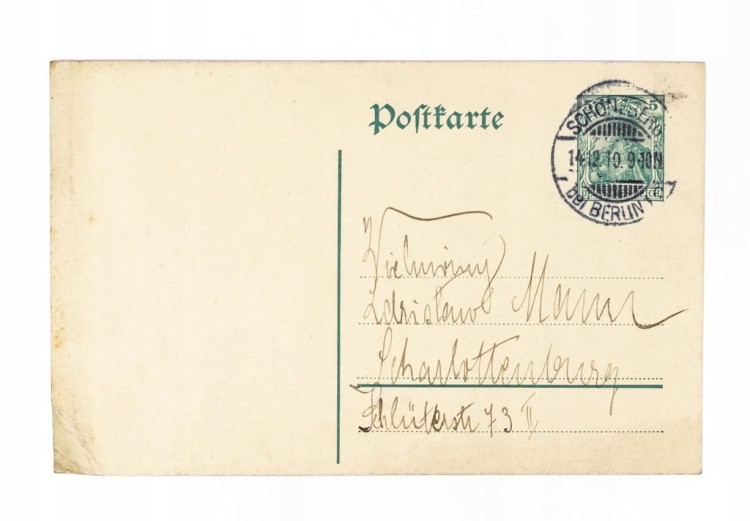 Postkarte
SCHÖNEBERG
14.12.10. 9-10N.
bei BERLIN 1
5
Wielmożny
Zdzisław Mann
Charlottenburg
Schlüterstr 73 II